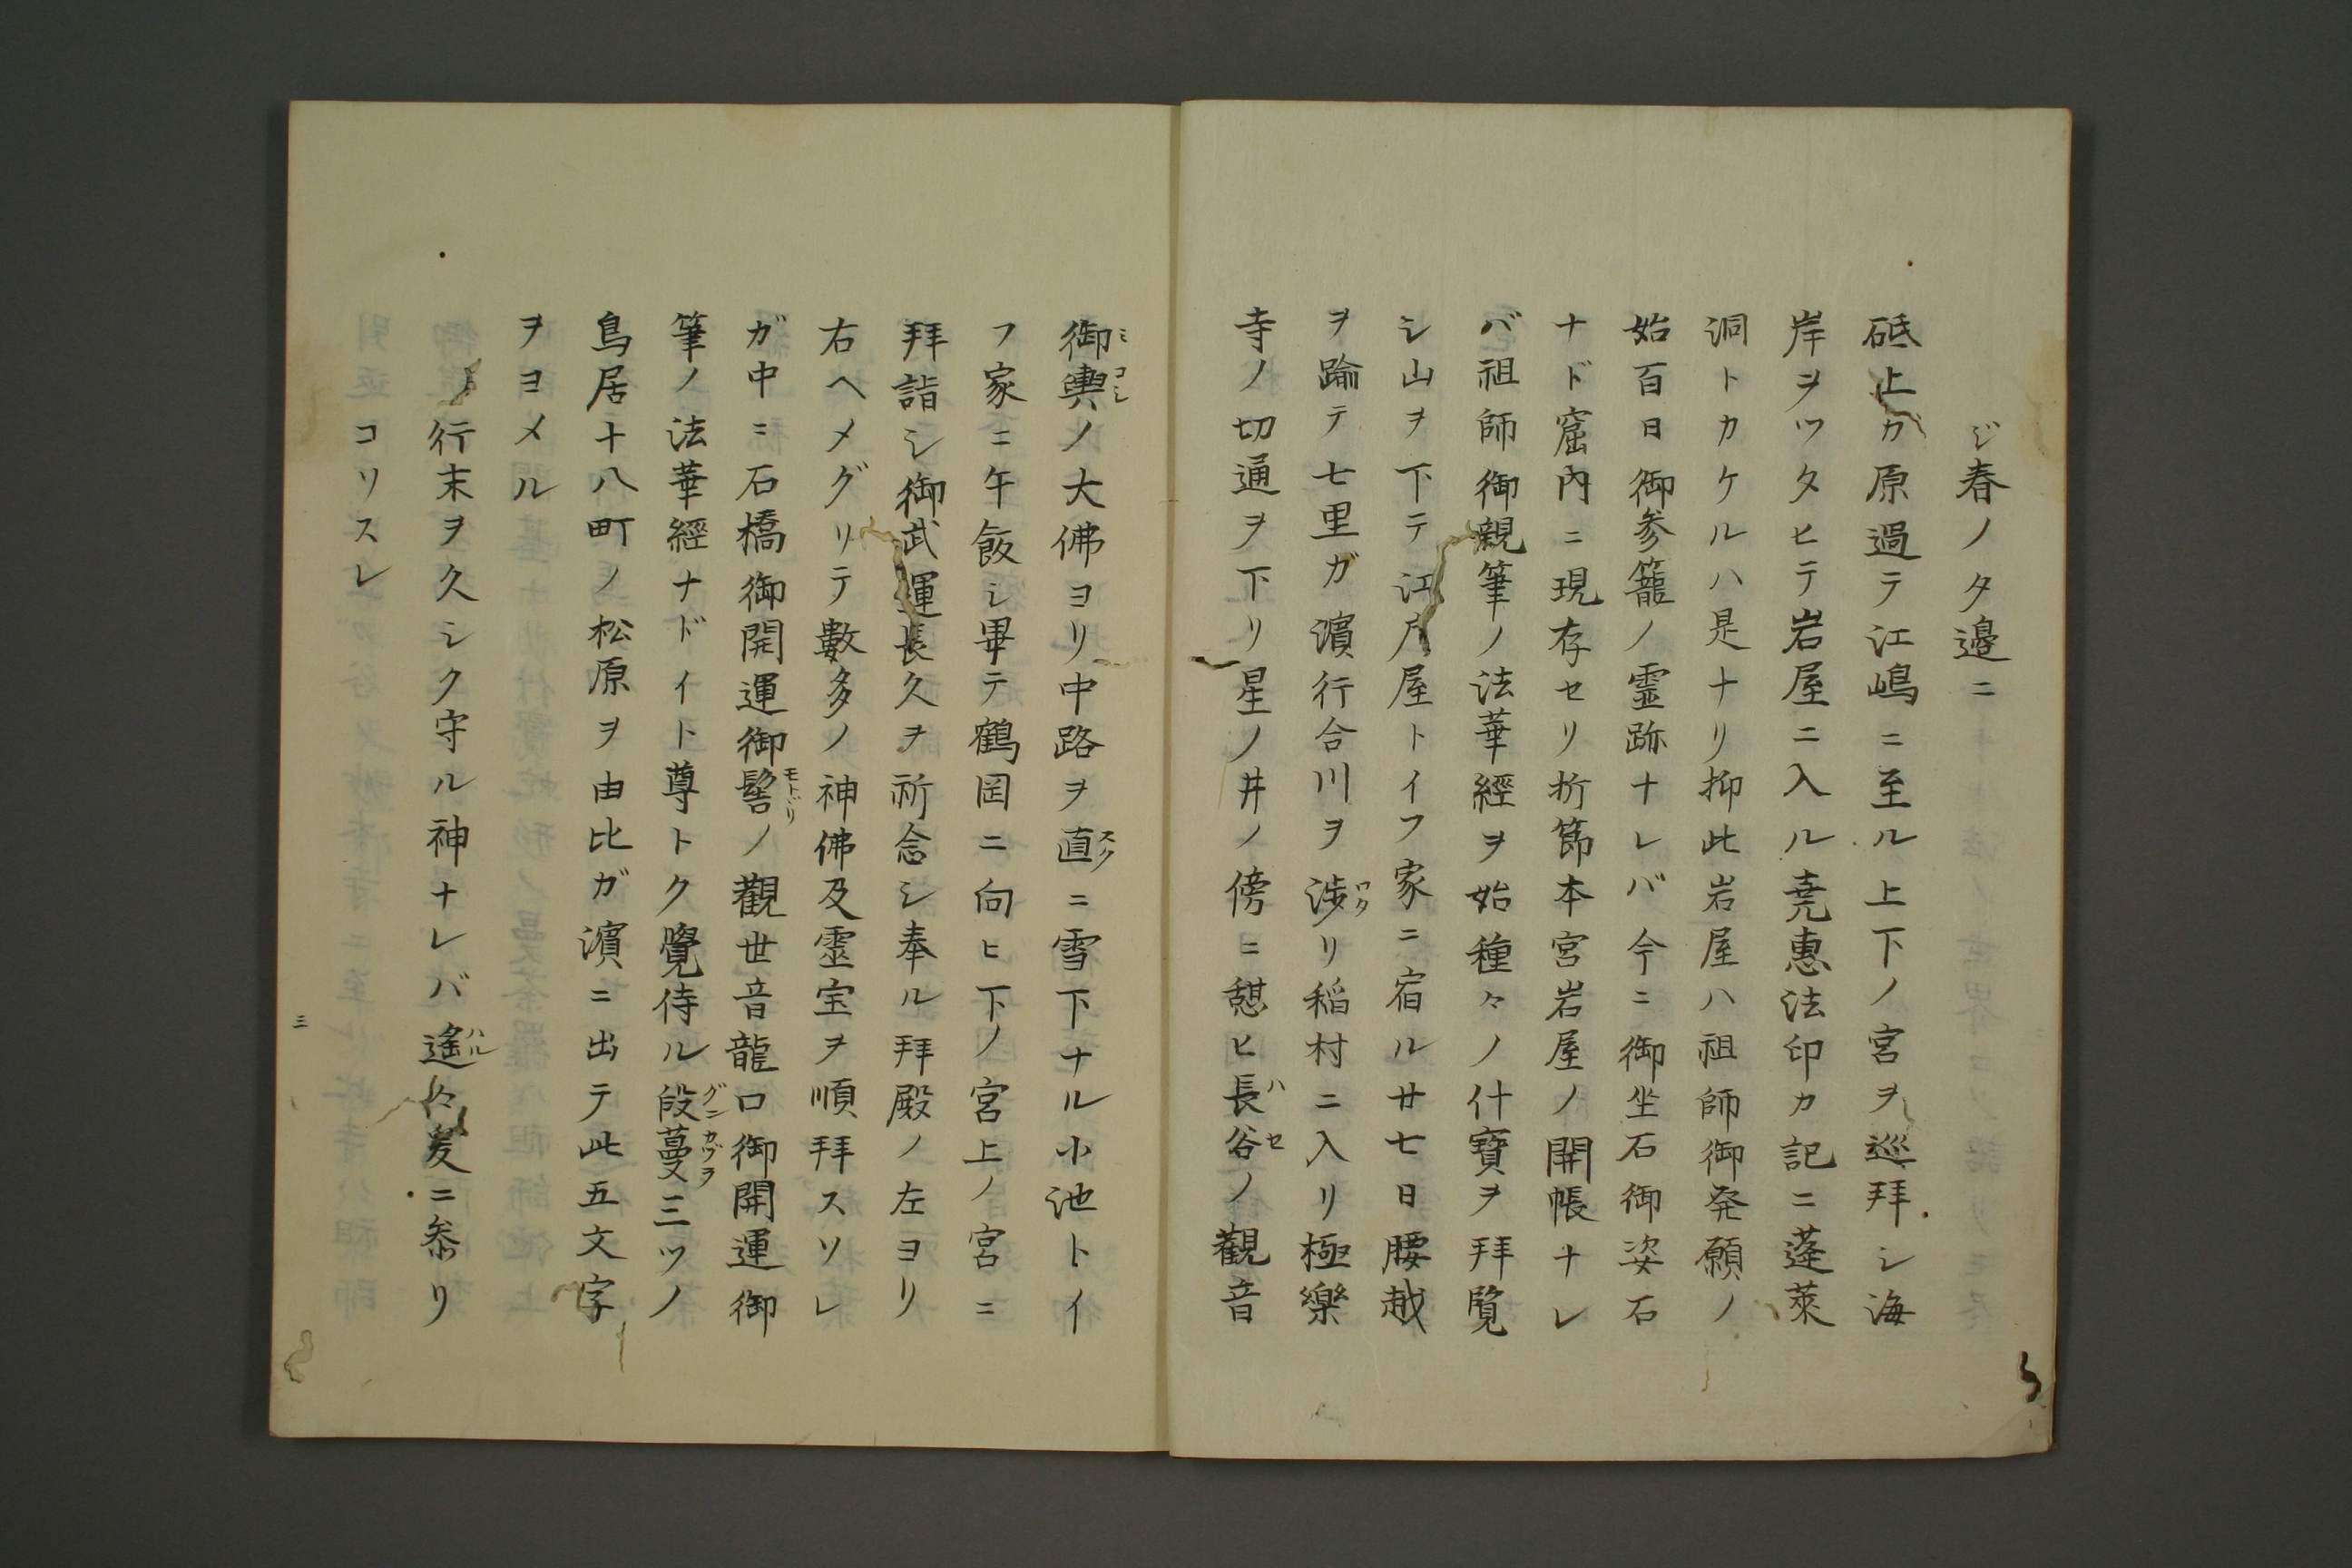 ジ春ノ夕邊ニ
砥上ガ原過テ江嶋ニ至ル上下ノ宮ヲ巡拜シ海
岸ヲツタヒテ岩屋ニ入ル尭惠法印カ記ニ蓬萊
洞トカケルハ是ナリ抑此岩屋ハ祖師御発願ノ
始百日御参籠ノ霊跡ナレバ今ニ御坐石御姿石
ナド窟内ニ現存セリ折節本宮岩屋ノ開帳ナレ
バ祖師御親筆ノ法華經ヲ始種々ノ什寶ヲ拜覧
シ山ヲ下テ江戸屋トイフ家ニ宿ル廿七日腰越
ヲ踰テ七里ガ濱行合川ヲ渉リ稲村ニ入リ極樂
寺ノ切通ヲ下リ星ノ井ノ傍ニ憩ヒ長谷ノ觀音
御輿ノ大佛ヨリ中路ヲ直ニ雪下ナル小池トイ
フ家ニ午飯シ畢テ鶴岡ニ向ヒ下ノ宮上ノ宮ニ
拜詣シ御武運長久ヲ祈念シ奉ル拜殿ノ左ヨリ
右ヘメグリテ數多ノ神佛及霊宝ヲ順拜スソレ
ガ中ニ石橋御開運御髻ノ觀世音龍口御開運御
筆ノ法華經ナドイト尊トク覺侍ル段蔓三ツノ
鳥居十八町ノ松原ヲ由比ガ濱ニ出テ此五文字
ヲヨメル
行末ヲ久シク守ル神ナレバ遙々爰ニ参リ
コリスレ
三